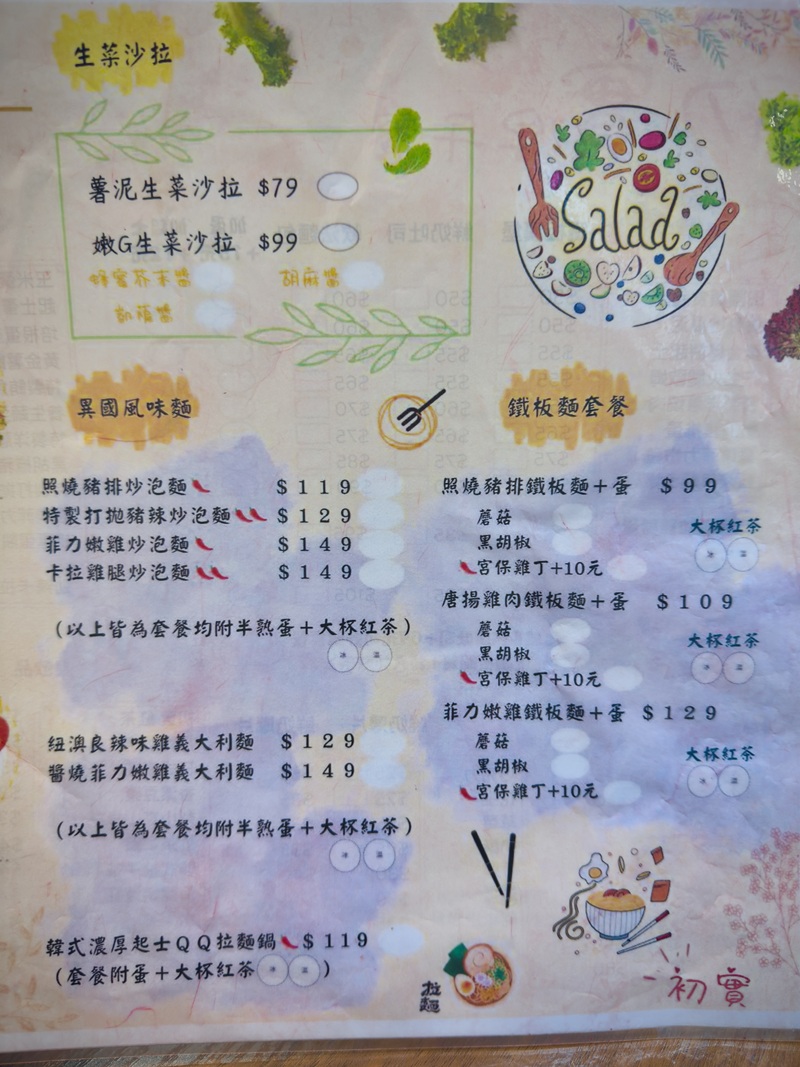 生菜沙拉
薯泥生菜沙拉 $79
嫩G生菜沙拉 $99
蜂蜜芥末醬 胡麻醬
凱薩醬
Salad
異國風味麵
照燒豬排炒泡麵 $119
特製打拋豬辣炒泡麵 $129
菲力嫩雞炒泡麵 $149
卡拉雞腿炒泡麵 $149
(以上皆為套餐均附半熟蛋+大杯紅茶)
冰 溫
紐澳良辣味雞義大利麵 $129
醬燒菲力嫩雞義大利麵 $149
(以上皆為套餐均附半熟蛋+大杯紅茶)
冰 溫
韓式濃厚起士QQ拉麵鍋 $119
(套餐附蛋+大杯紅茶 )
鐵板麵套餐
照燒豬排鐵板麵+蛋 $99
蘑菇
大杯紅茶
黑胡椒
冰 溫
宮保雞丁+10元
唐揚雞肉鐵板麵+蛋 $109
蘑菇
大杯紅茶
黑胡椒
冰 溫
宮保雞丁+10元
菲力嫩雞鐵板麵+蛋 $129
蘑菇
大杯紅茶
黑胡椒
冰 溫
宮保雞丁+10元
拉麵
初實